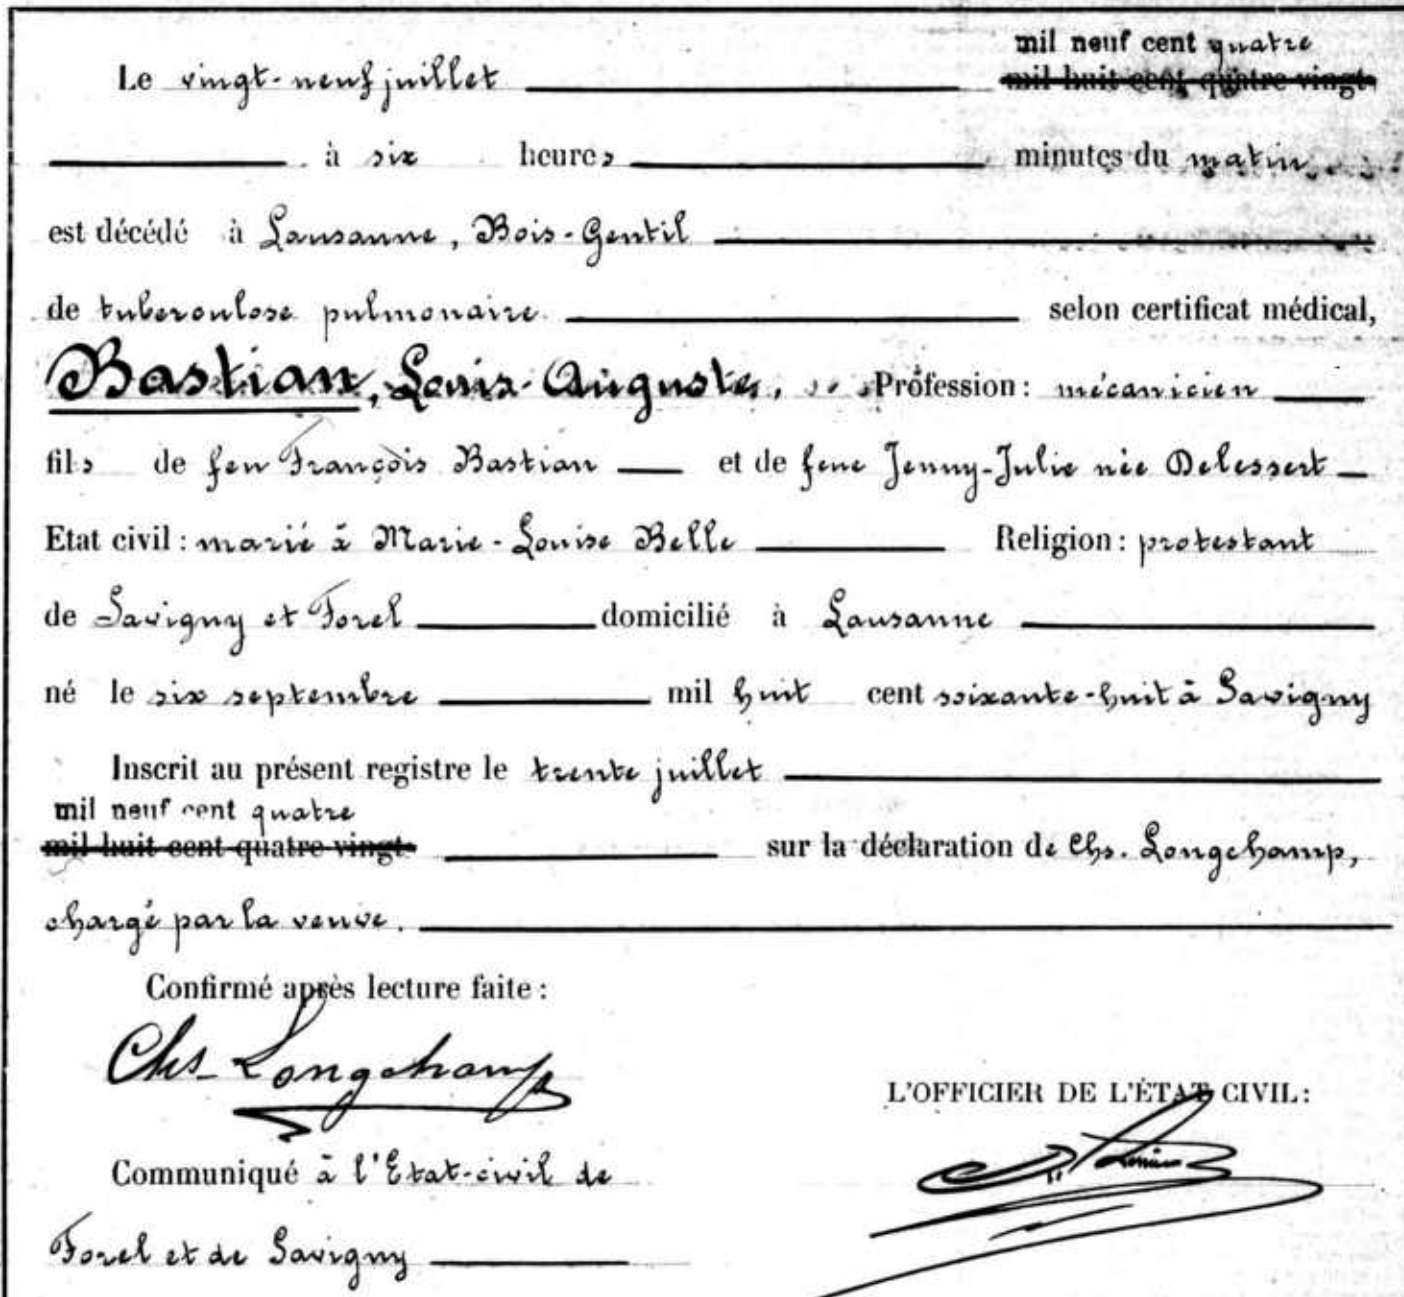 mil neuf cent quatre
Le vingt-neuf juillet mil huit cent quatre vingt
à six heures minutes du matin
est décédé à Lausanne, Bois-Gentil
de tuberculose pulmonaire selon certificat médical,
Bastian, Louis-Auguste, Profession: mécanicien
fils de feu François Bastian et de feue Jenny-Julie née Delessert
Etat civil: marié à Marie-Louise Belle Religion: protestant
de Savigny et Forel domicilié à Lausanne
né le six septembre mil huit cent soixante-huit à Savigny
Inscrit au présent registre le trente juillet
mil neuf cent quatre
mil huit cent quatre vingt sur la déclaration de Chs. Longchamp,
chargé par la veuve.
Confirmé après lecture faite:
Chs Longchamp
L'OFFICIER DE L'ÉTAT CIVIL:
Communiqué à l'Etat-civil de
Forel et de Savigny